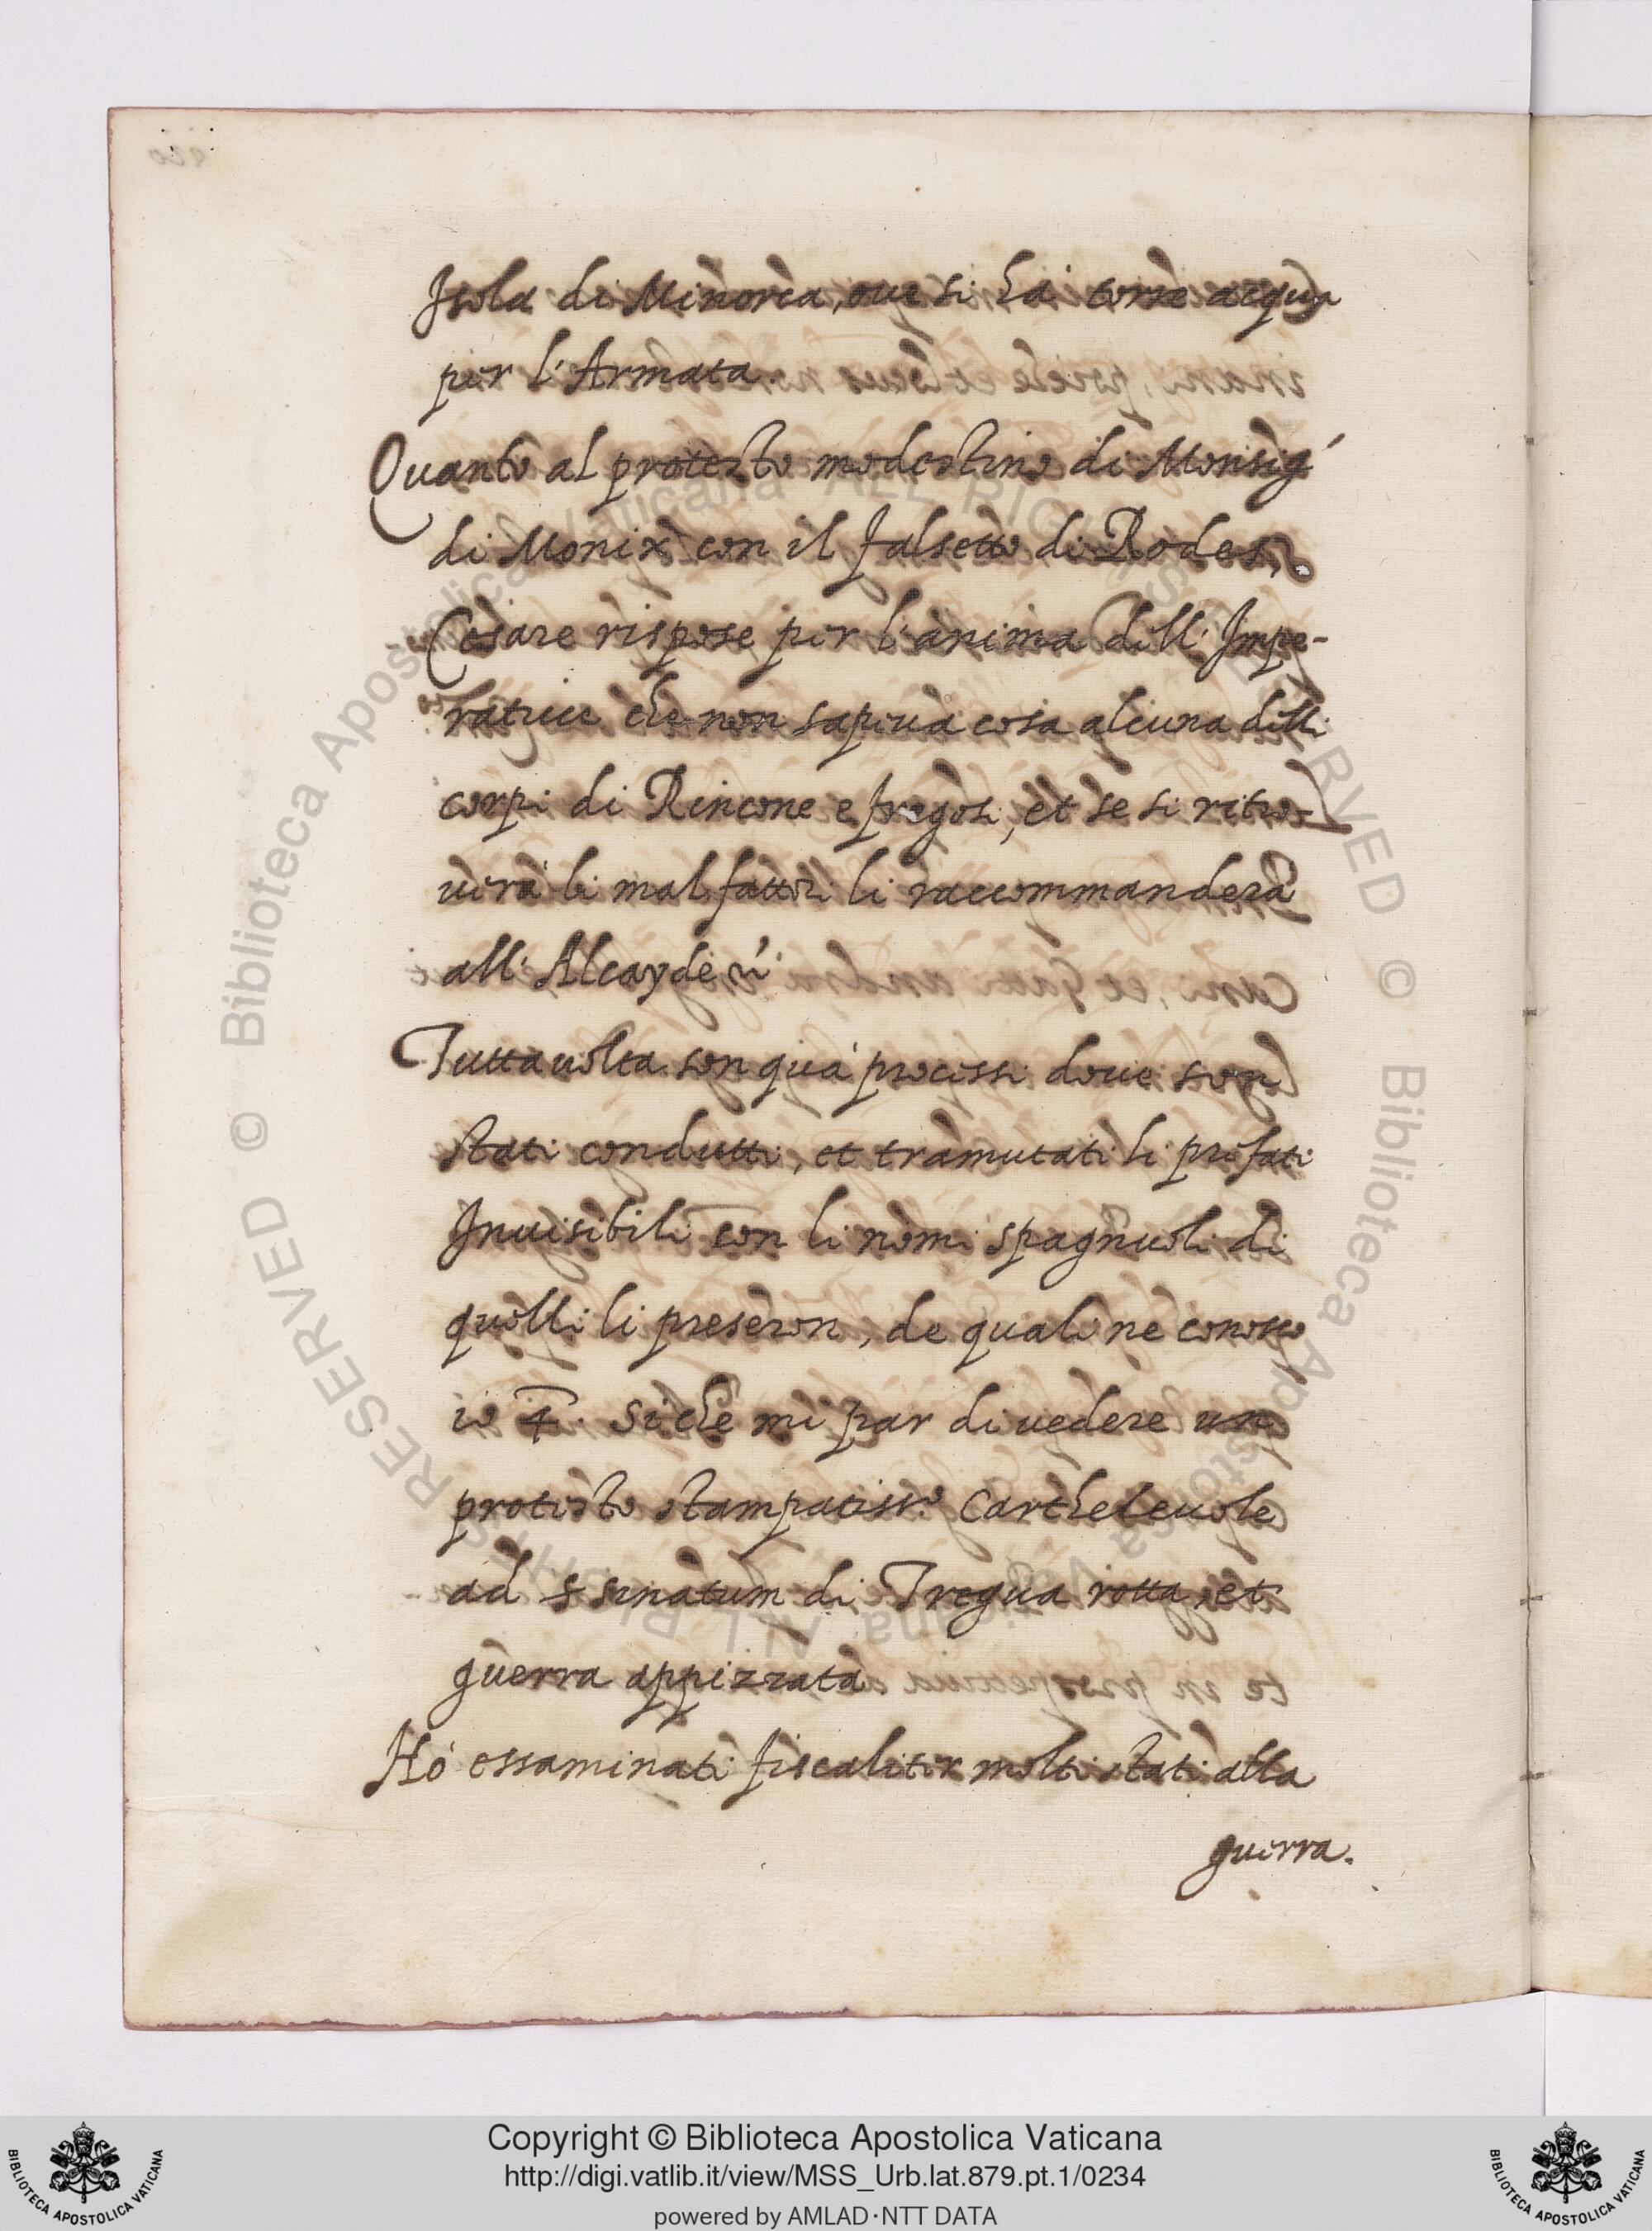 Isola di Minorca, oue si hà torre acqua
per l'Armata.
Quanto al protesto modestino di Monsig.
di Monix con il falsetto di Rodes,
Cesare rispose per l'anima dell'Impe-
ratrice che non sapeua cosa alcuna delli
corpi di Rincone e fregosi, et se si ritro-
uerà li malfattori li raccommanderà
all'Alcayde
Tuttauolta son quà processi doue son
stati condutti, et tramutati li prefati
Inuisibili con li nomi spagnuoli di
quelli li preseron, de quali nè conosco
io 4. Si che mi par di uedere un
protesto stampatiss.o Cartheleuole
ad senatum di Tregua rotta, et
guerra appizzata
Hò essaminati fiscaliter molti stati alla
guerra.
Copyright © Biblioteca Apostolica Vaticana
http://digi.vatlib.it/view/MSS_Urb.lat.879.pt.1/0234
powered by AMLAD·NTT DATA
BIBLIOTECA APOSTOLICA VATICANA
BIBLIOTECA APOSTOLICA VATICANA